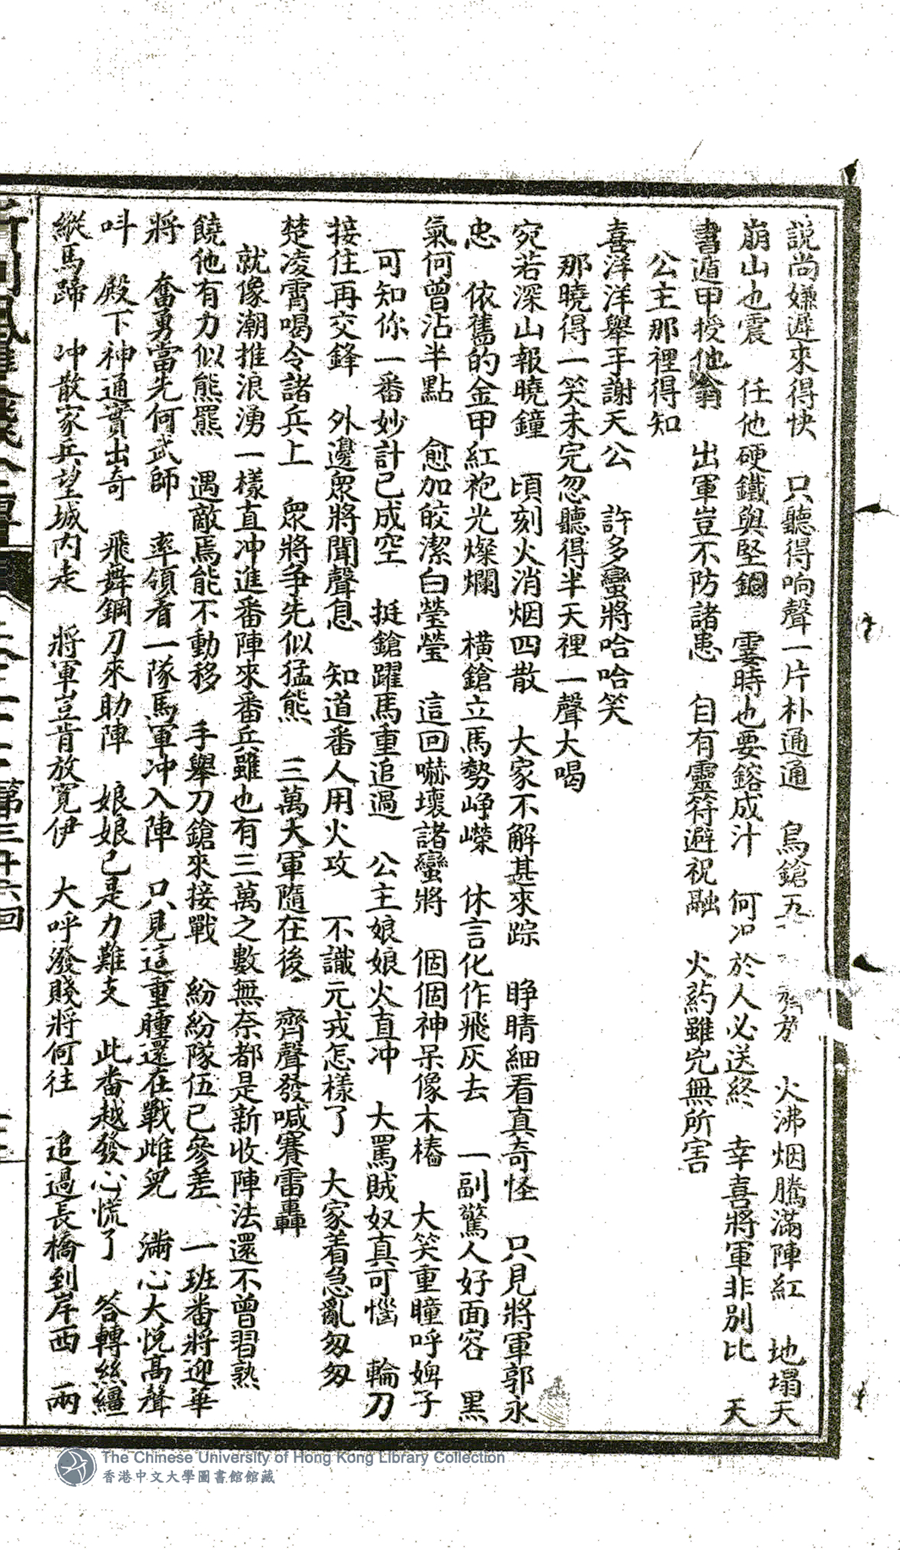 說尚嫌遲來得快　只聽得响聲一片朴通通　鳥鎗五　火沸烟騰滿陣紅　地塌天
崩山也震　任他硬鐵與堅鋼　霎時也要鎔成汁　何况於人必送終　幸喜將軍非別比　天
書遁甲授他翁　出軍豈不防諸患　自有靈符避祝融　火葯雖兇無所害
公主那裡得知
喜洋洋舉手謝天公　許多蠻將哈哈笑
那曉得一笑未完忽聽得半天裡一聲大喝
宛若深山報曉鐘　頃刻火消烟四散　大家不解甚來踪　睜睛細看真奇怪　只見將軍郭永
忠　依舊的金甲紅袍光燦爛　橫鎗立馬勢崢嶸　休言化作飛灰去　一副驚人好面容　黑
氣何曾沾半點　愈加皎潔白瑩瑩　這回嚇壞諸蠻將　個個神呆像木樁　大笑重瞳呼婢子
可知你一番妙計已成空　挺鎗躍馬重追過　公主娘娘火直冲　大罵賊奴真可惱　輪刀
接住再交鋒　外邊眾將聞聲息　知道番人用火攻　不識元戎怎樣了　大家着急亂匆匆
楚凌霄喝令諸兵上　眾將爭先似猛熊　三萬大軍隨在後　齊聲發喊賽雷轟
就像潮推浪湧一樣直冲進番陣來番兵雖也有三萬之數無奈都是新收陣法還不曾習熟
饒他有力似熊羆　遇敵焉能不動移　手舉刀鎗來接戰　紛紛隊伍已參差　一班番將迎華
將　奮勇當先何武師　率領着一隊馬軍冲入陣　只見這重瞳還在戰雌兒　滿心大悅高聲
呌　殿下神通實出奇　飛舞鋼刀來助陣　娘娘已是力難支　此番越發心慌了　答轉絲繮
縱馬蹄　冲散家兵望城內走　將軍豈肯放寬伊　大呼潑賤將何往　追過長橋到岸西　兩
第三十六回
The Chinese University of Hong Kong Library Collection
香港中文大學圖書館館藏